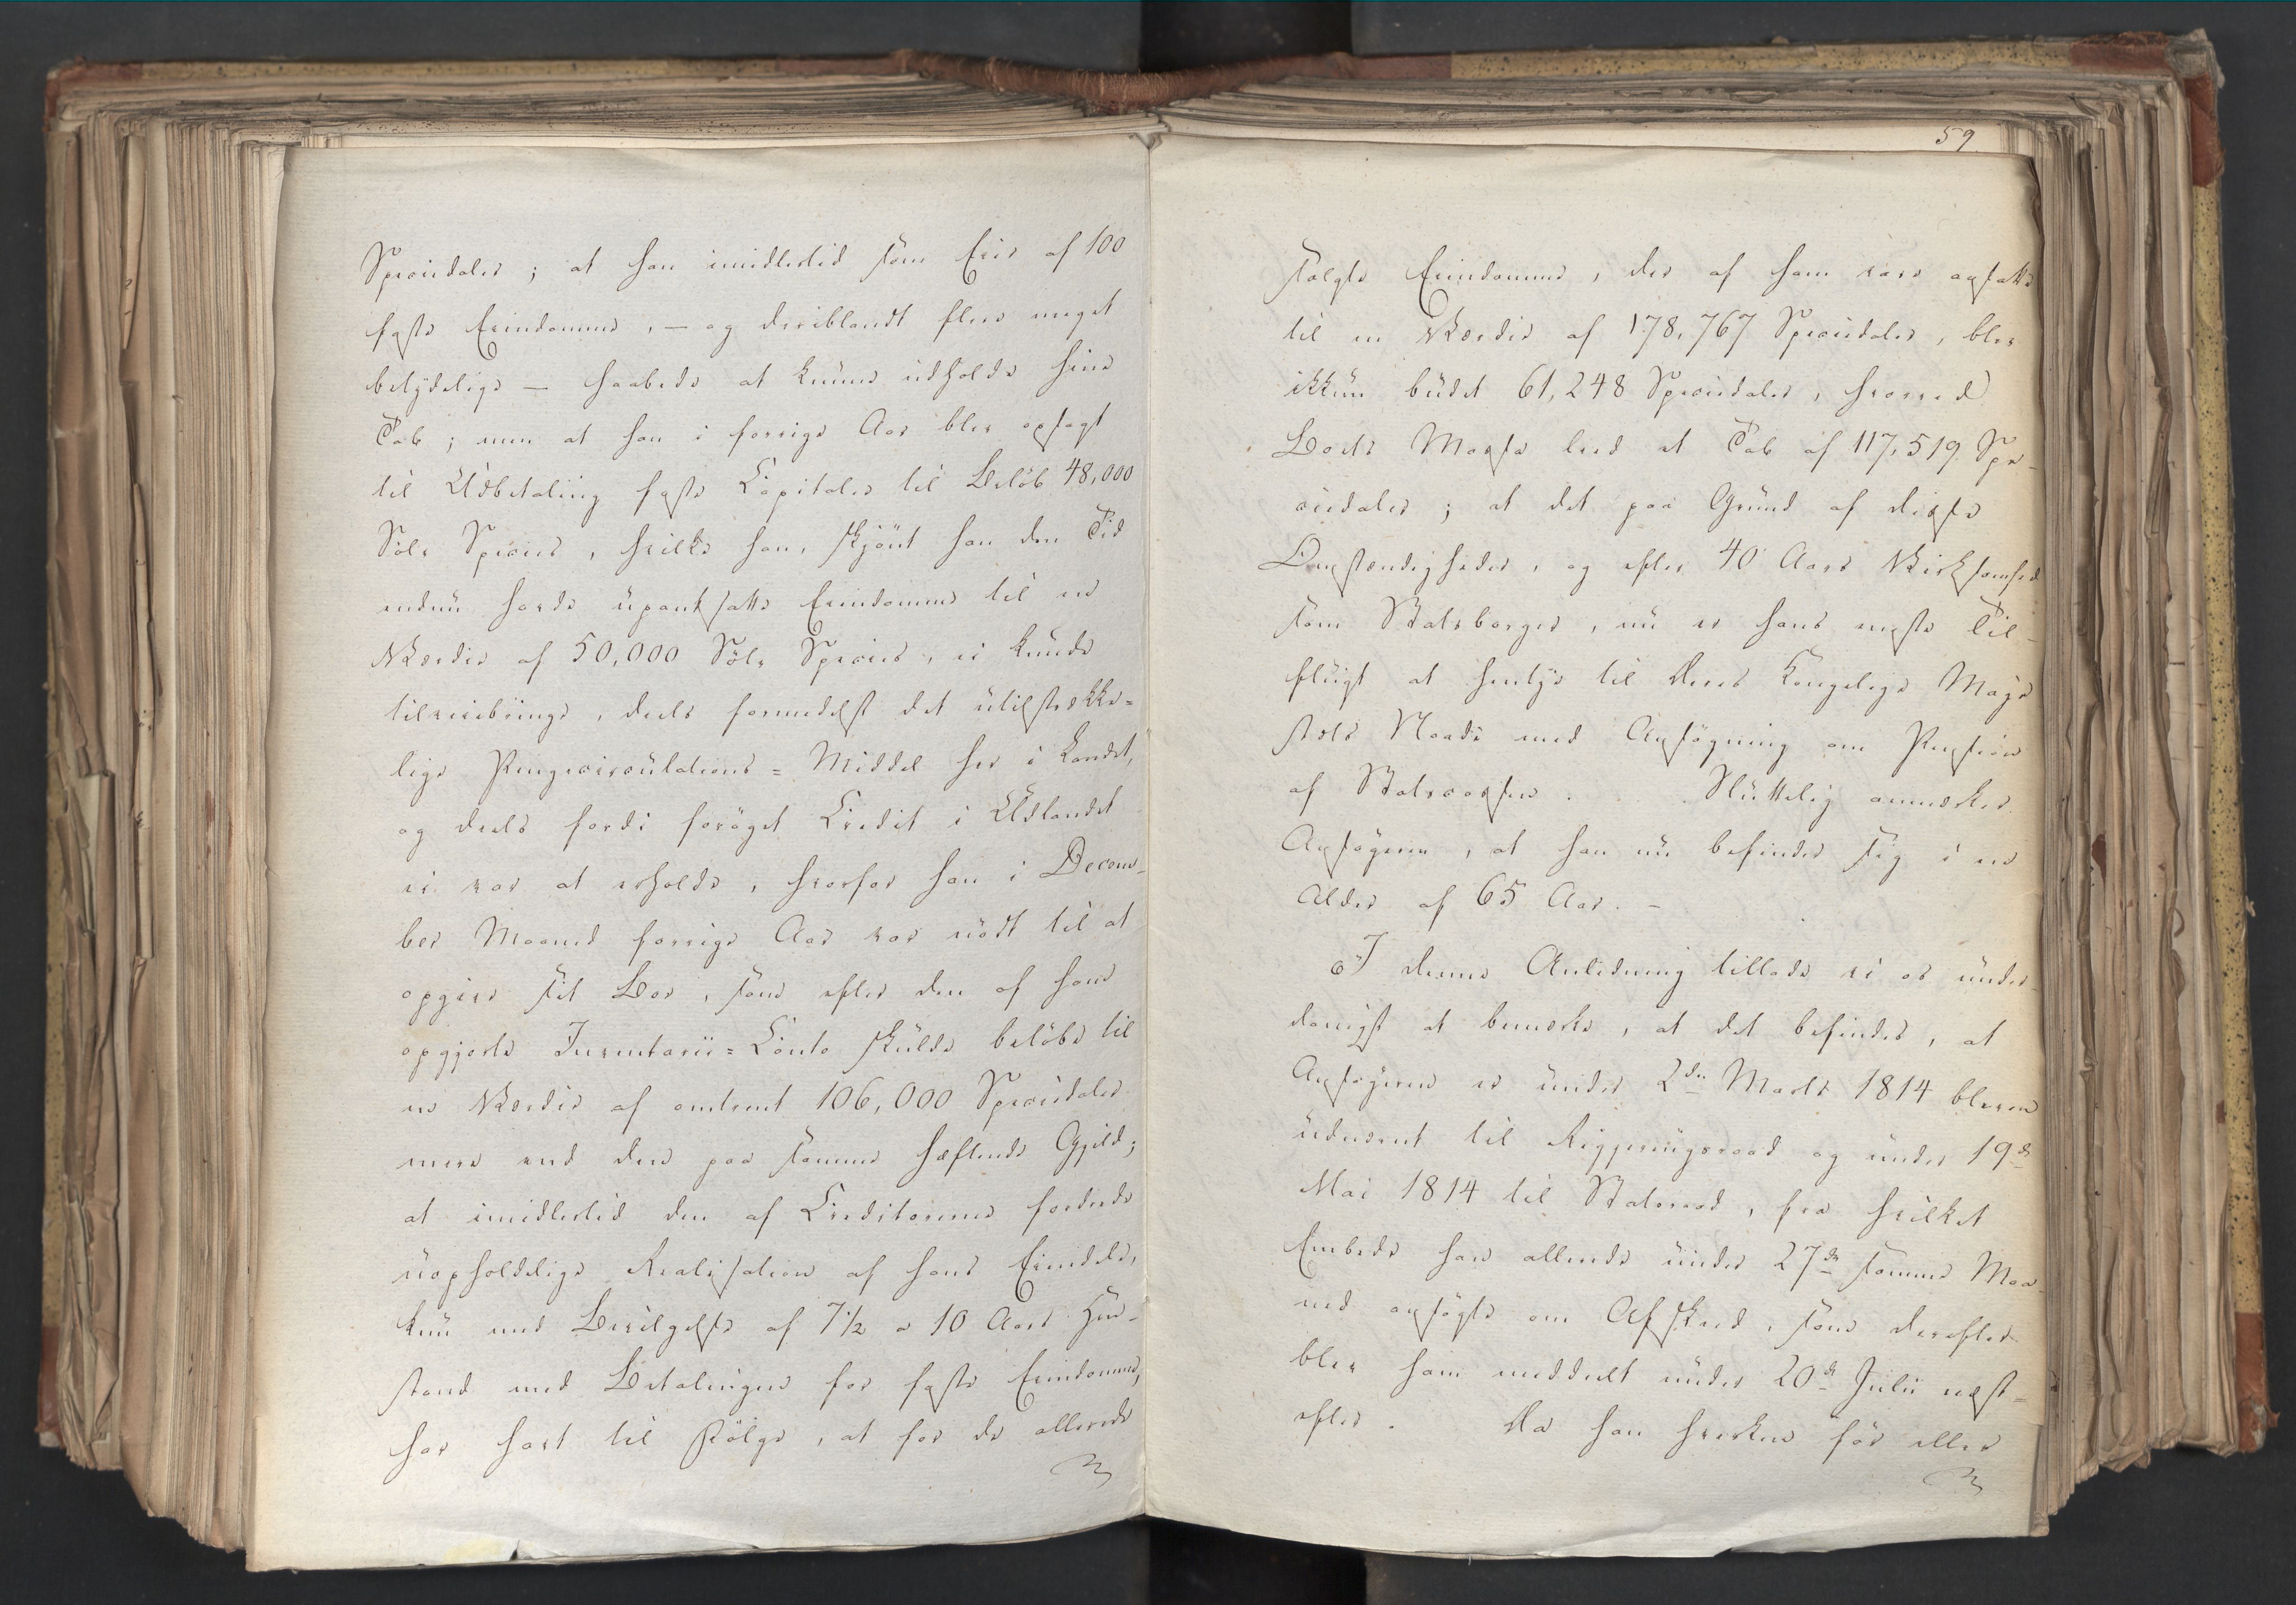 Speciedaler; at han imidlertid som Eier af 100
faste Eiendomme, — og deriblandt flere meget
betydelige — haabede at kunne udholde hine
Tab; men at han i forrige Aar blev opsagt
til Udbetaling faste Capitaler til Beløb 48,000
Sølv Species, hvilke han, skjönt han den Tid
endnu havde upantsatte Eiendomme til en
Værdie af 50,000 Sölv Species, ei kunde
tilveiebringe, deels formedelst det utilstrække=
lige Pengecirculations=Middel her i Landet,
og deels fordi forøget Credit i Udlandet
ei var at erholde, hvorfor han i Decem-
ber Maaned forrige Aar var nödt til at
opgive sit Boe, som efter den af ham
opgjorte Inventarii=Conto skulde beløbe til
en Værdie af omtrent 106,000 Speciedaler
mere end den paa samme hæftende Gjeld;
at imidlertid den af Creditorerne fordrede
uopholdelige Realisation af hans Eiendele,
kun med Bevilgelse af 7½ a 10 Aars Hen-
stand med Betalingen for faste Eiendomme,
har havt til Følge, at for de allerede
59
solgte Eiendomme, der af ham vare ansatte
til en Værdie af 178,767 Speciedaler, blev
ikkun budet 61,248 Speciedaler, hvorved
Boets Masse leed et Tab af 117,519 Spe-
ciedaler; at det paa Grund af disse
Omstændigheder, og efter 40 Aars Virksomhed
som Statsborger, nu er hans eneste Til-
flugt at hentye til Deres Kongelige Maje
stæts Naade med Ansøgning om Pension
af Statscassen. Sluttelig anmærker
Ansøgeren, at han nu befinder sig i en
Alder af 65 Aar. –
I denne Anledning tillade vi os under-
danigst at bemærke, at det befindes, at
Ansøgeren er under 2den Marts 1814 bleven
udnævnt til Regjeringsraad og under 19de
Mai 1814 til Statsraad, fra hvilket
Embede han allerede under 27de samme Maa-
ned ansøgte om Afskeed, som derefter
blev ham meddeelt under 20de Julii næst-
efter. Da han hverken før eller